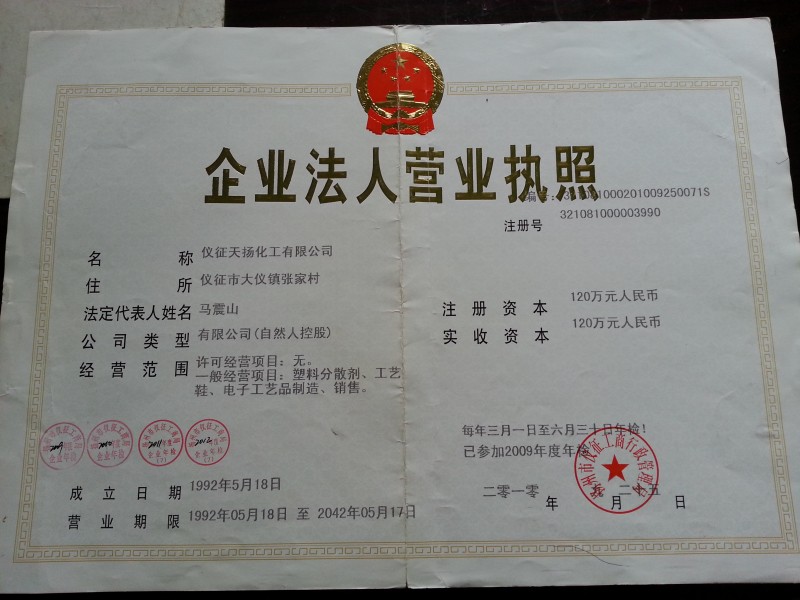 企业法人营业执照
注册号 321081000003990
名称 仪征天扬化工有限公司
住所 仪征市大仪镇张家村
法定代表人姓名 马震山
公司类型 有限公司(自然人控股)
经营范围 许可经营项目：无。
一般经营项目：塑料分散剂、工艺
鞋、电子工艺品制造、销售。
注册资本 120万元人民币
实收资本 120万元人民币
每年三月一日至六月三十日年检！
已参加2009年度年检
成立日期 1992年5月18日
营业期限 1992年05月18日 至 2042年05月17日
二零一零年 月 二十五日